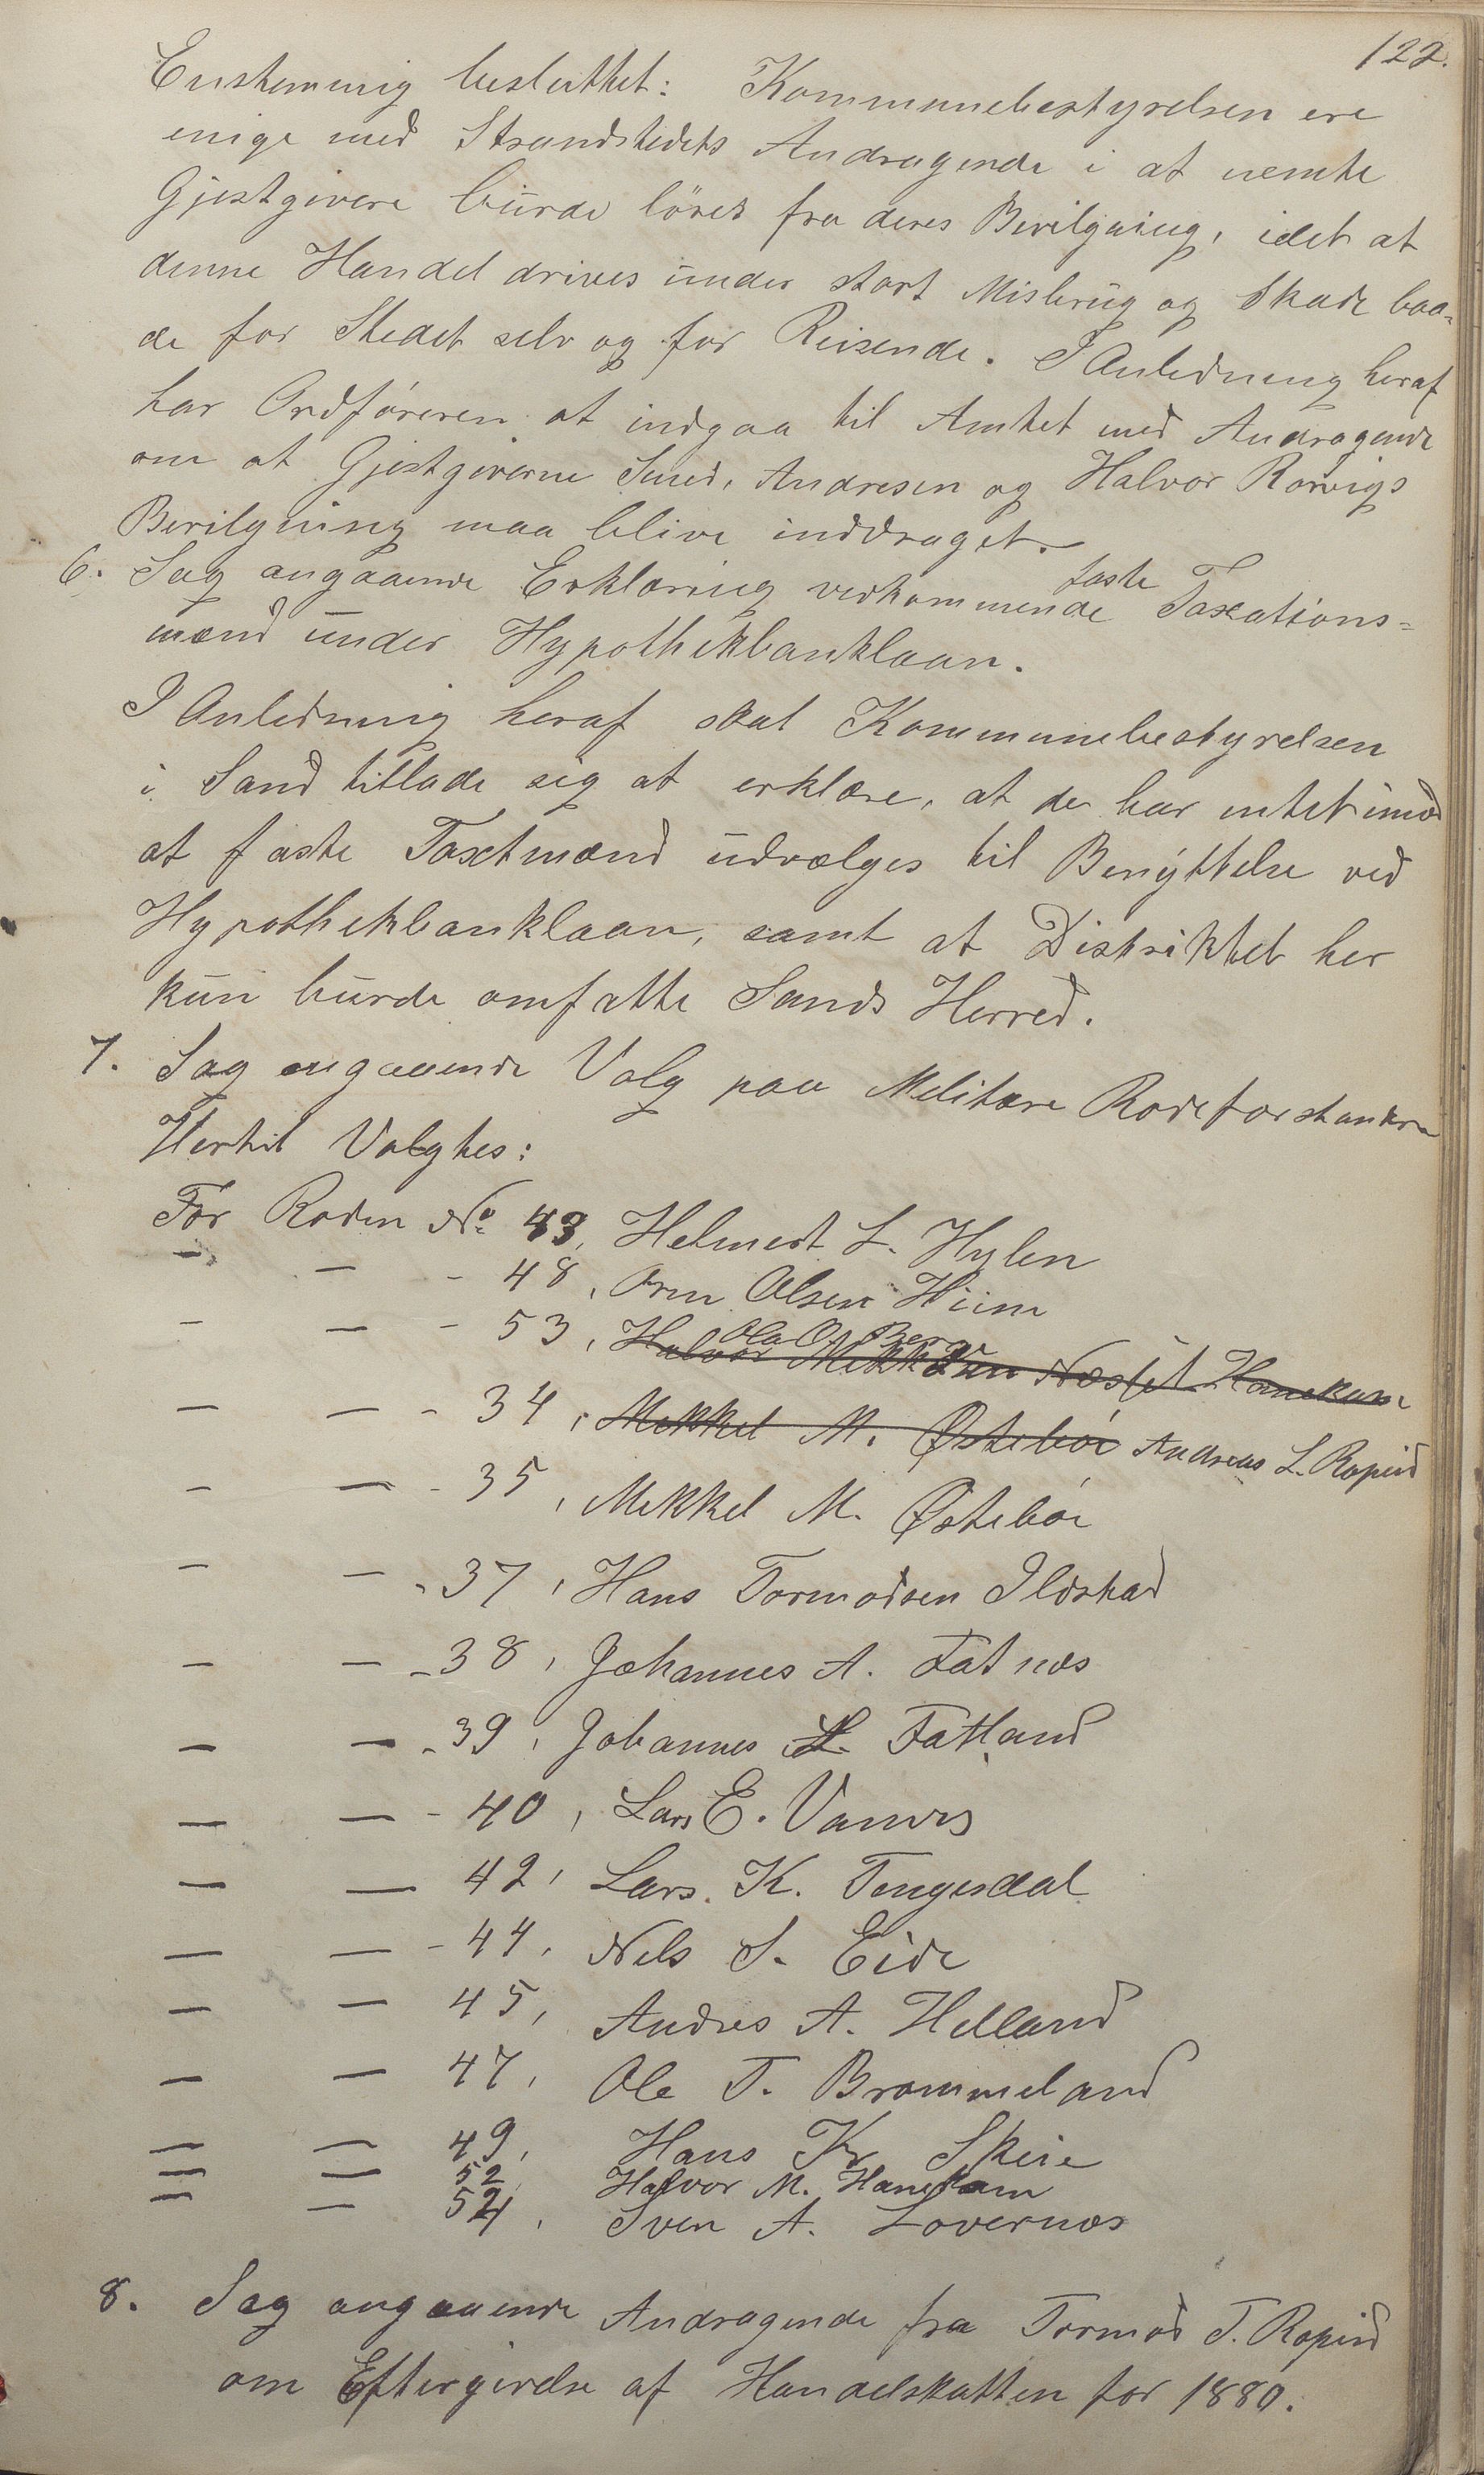 122.
Enstemmig besluttet: Kommunebestyrelsen ere
enige med Strandstedets Andragende i at nemte
Gjestgivere burde löses fra deres Bevilgning, idet at
denne Handel drives under stort Misbrug og Skade baa-
de for Stedet selv og for Reisende. I Anledning heraf
har Ordföreren at indgaa til Amtet med Andragende
om at Gjestgiverne Smed, Andresen og Halvor Rørvigs
Bevilgning maa blive inddraget.
6. Sag angaaende Erklæring vedkommende faste Taxations-
mænd under Hypothekbanklaan.
I Anledning heraf skal Kommunebestyrelsen
i Sand tillade sig at erklære, at de har intet imod
at faste Taxtmænd udvælges til Benyttelse ved
Hypothekbanklaan, samt at Distriktet her
kun burde omfatte Sands Herred.
7. Sag angaaende Valg paa Militære Rodeforstandere
Hertil Valgtes:
For Roden No 43, Helmest L. Hylen
— — - 48, Orm Olsen Hiim
— — - 53, Ola O. Berge
Halvor Mikkelsen Næsset Hanekam
— — - 34, Mikkel M. Østebøe Andreas L. Ropeid
— — - 35, Mikkel M. Østebøe
— — - 37, Hans Tormodsen Ilvstad
— — - 38, Johannes A. Fatnæs
— — - 39, Johannes L. Fatland
— — - 40, Lars E. Vanvik
— — 42, Lars K. Tengesdal
— — - 44, Nels S. Eide
— — 45, Andres A. Helland
— — 47, Ole T. Brommeland
— — 49, Hans Kr Skeie
— — 52, Halvor M. Hanekam
— — 54, Sven A. Lovernæs
8. Sag angaaende Andragende fra Tormod T. Ropeid
om Eftergivelse af Handelskatten for 1880.